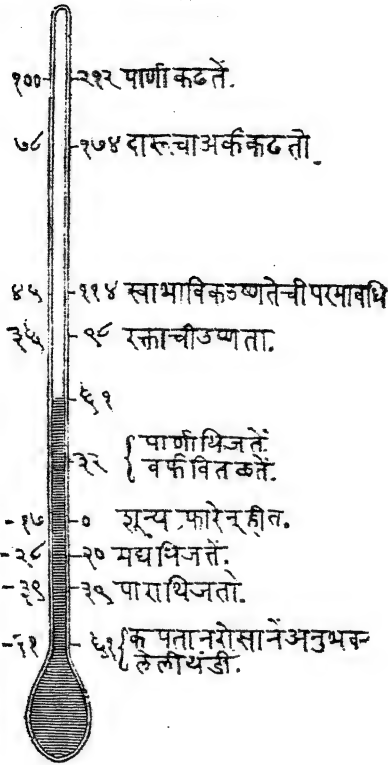 १०० २१२ पाणी कढतें.
७८ १७४ दारूचा अर्क कढतो.
४५ ११४ स्वाभाविक उष्णतेची परमावधि
३६ ९८ रक्ताची उष्णता.
६१
३२ पाणी थिजतें.
बर्फ वितळतें.
-१७ ० शून्य फारेन्हीत.
-२८ -२० मद्य थिजतें.
-३९ -३९ पारा थिजतो.
-६१ कपतान रोसानें अनुभव
लेली थंडी.